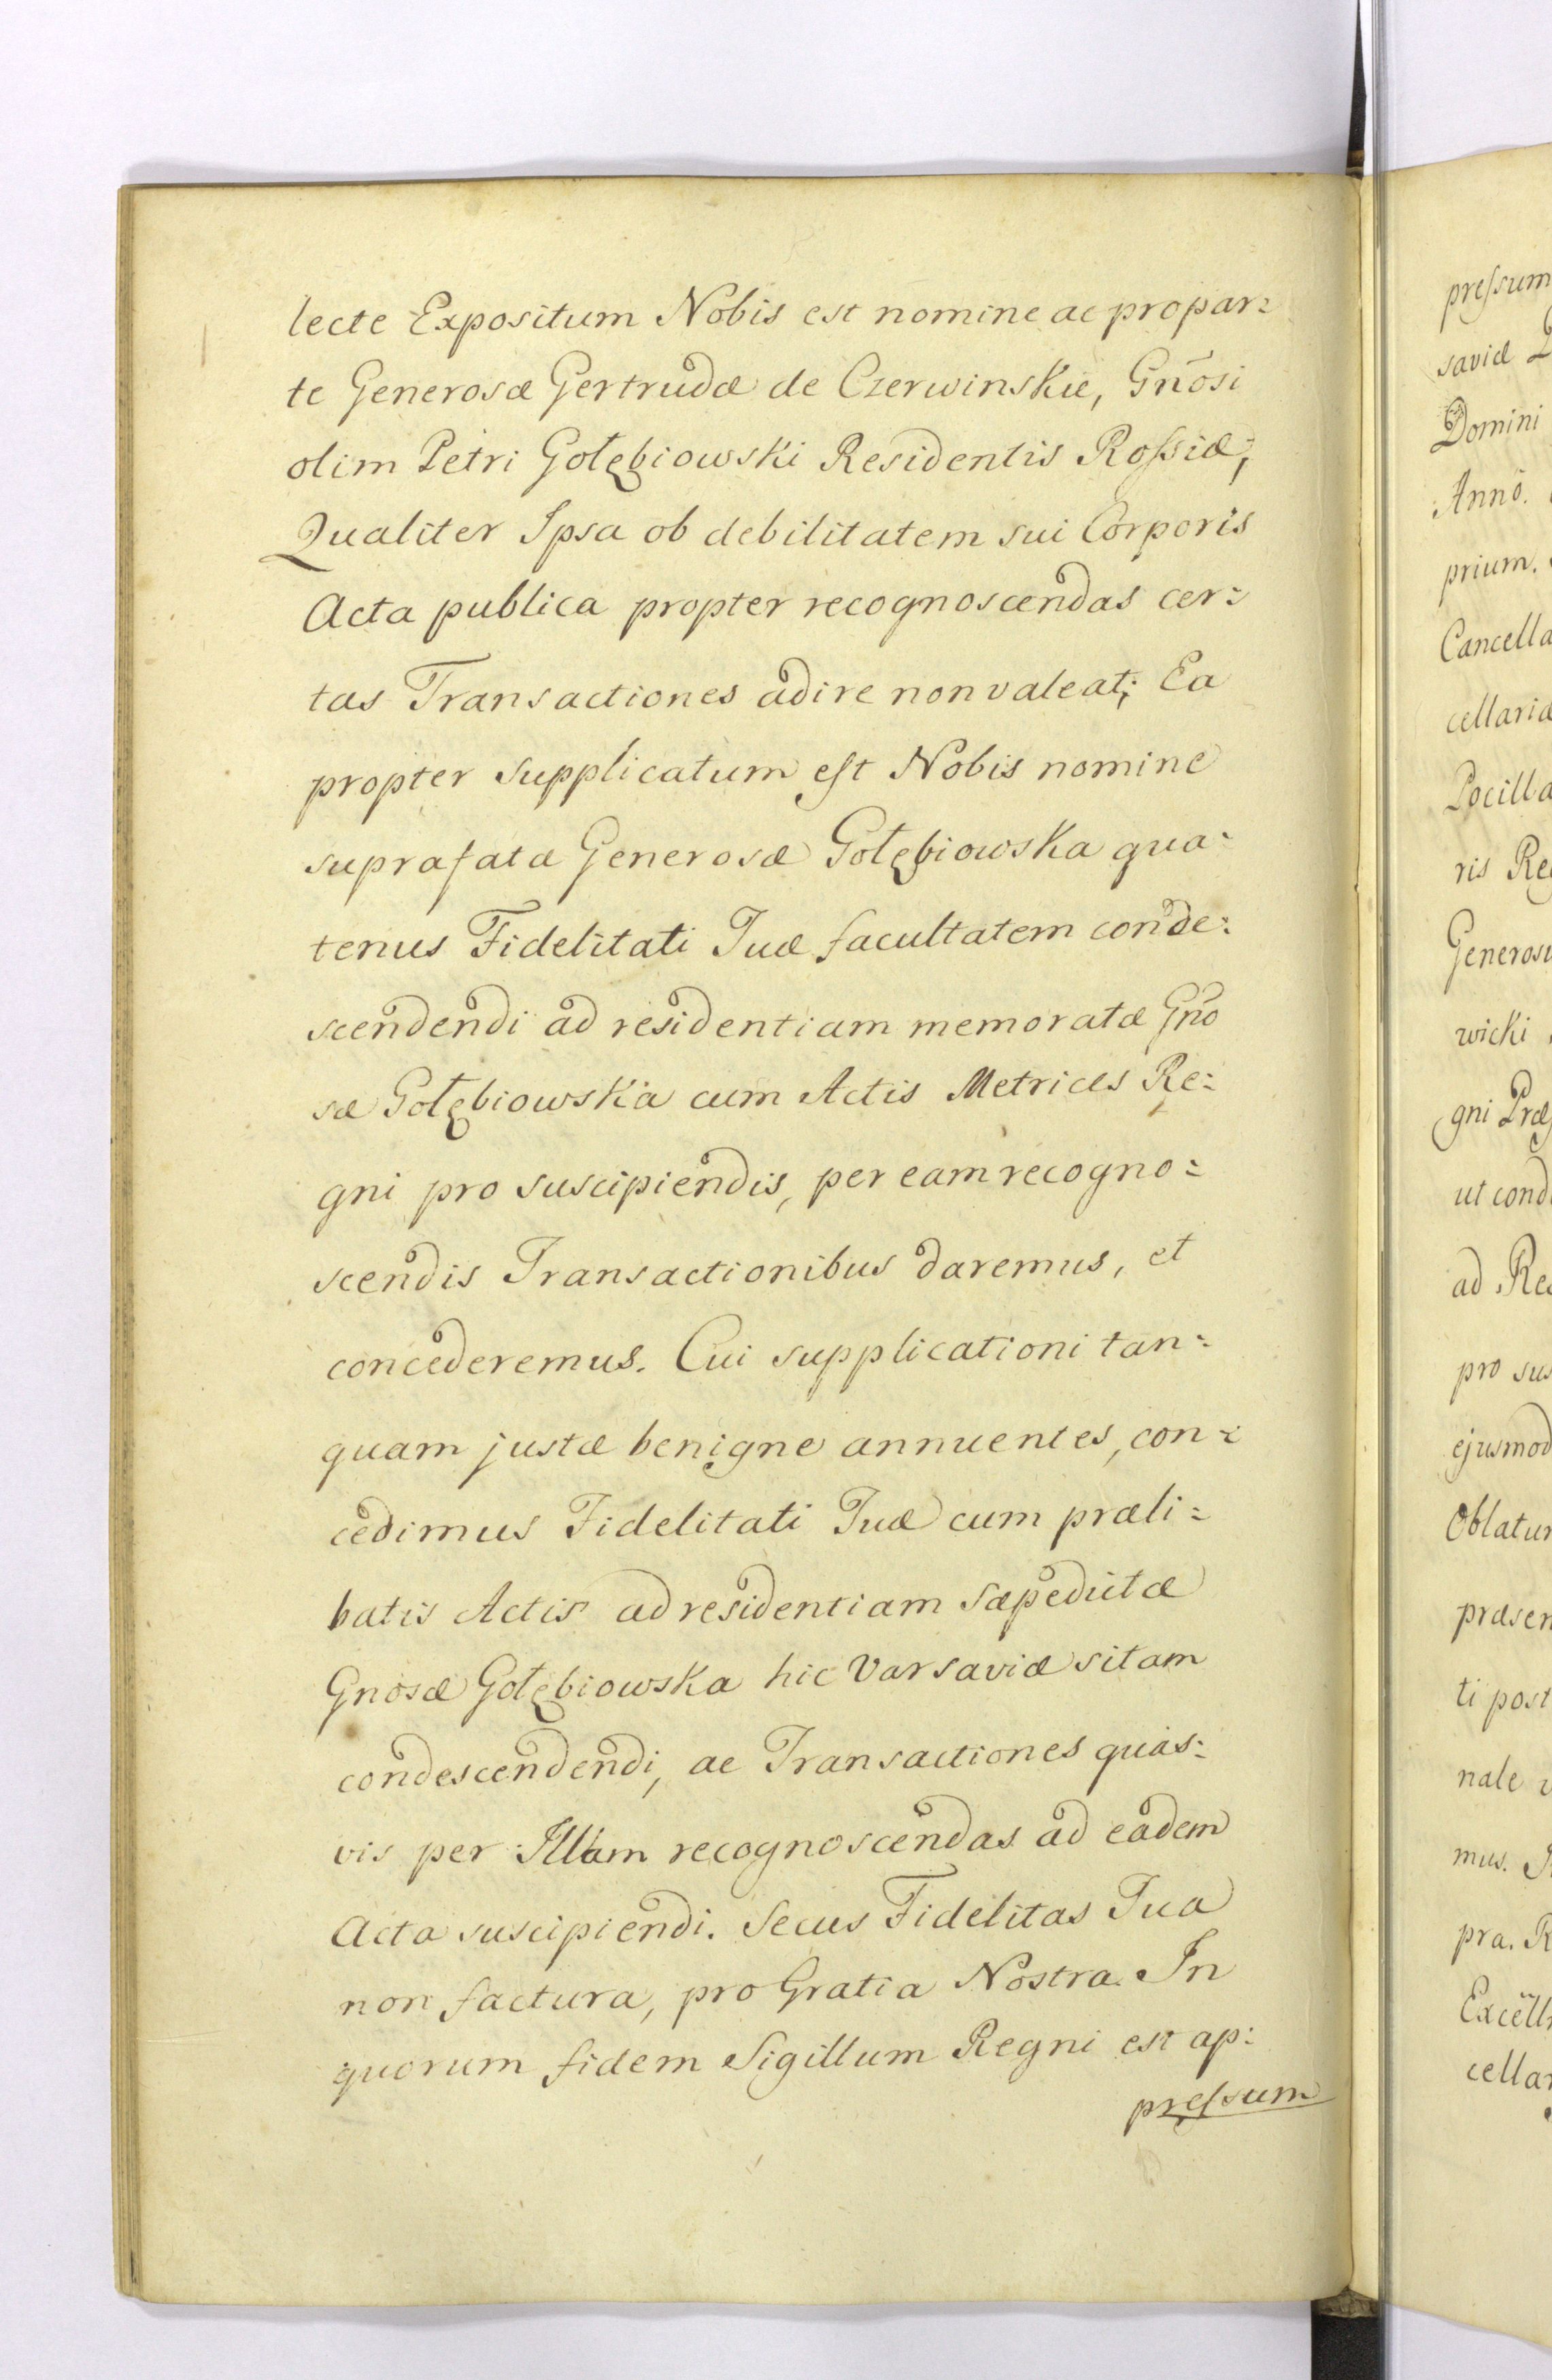 lecte Expositum Nobis est nomine ac propar=
te Generosæ Gertrudæ de Czerwinskie, Gnõsi
olim Petri Gołębiowski Residentis Roſsiæ,
Qualiter Ipsa ob debilitatem sui Corporis
Acta publica propter recognoscendas cer=
tas Transactiones adire non valeat; Ea
propter supplicatum eſt Nobis nomine
suprafatæ Generosæ Gołębiowska qua=
tenus Fidelitati Tuæ facultatem conde=
scendendi ad residentiam memoratæ Gno
sæ Gołębiowska cum Actis Metrices Re=
gni pro suscipiendis, per eam recogno=
scendis Transactionibus daremus, et
concederemus. Cui supplicationi tan=
quam justæ benigne annuentes, con=
cedimus Fidelitati Tuæ cum præli=
batis Actis ad residentiam sæpedictæ
Gnosæ Gołębiowska hic Varsaviæ sitam
condescendendi, ac Transactiones quas=
vis per Illam recognoscendas ad eadem
Acta suscipiendi. Secus Fidelitas Tua
non factura, pro Gratia Nostra. In
quorum fidem Sigillum Regni est ap=
preſsum
preſsum
saviæ
Domini
Anno.
prium.
Cancella
cellariæ
Pocilla
ris Re
Generosu
wicki
gni Præ
ut cond
ad Re
pro sus
ejusmod
Oblatu
præsen
ti post
nale
mus.
pra. R
Excell
cella